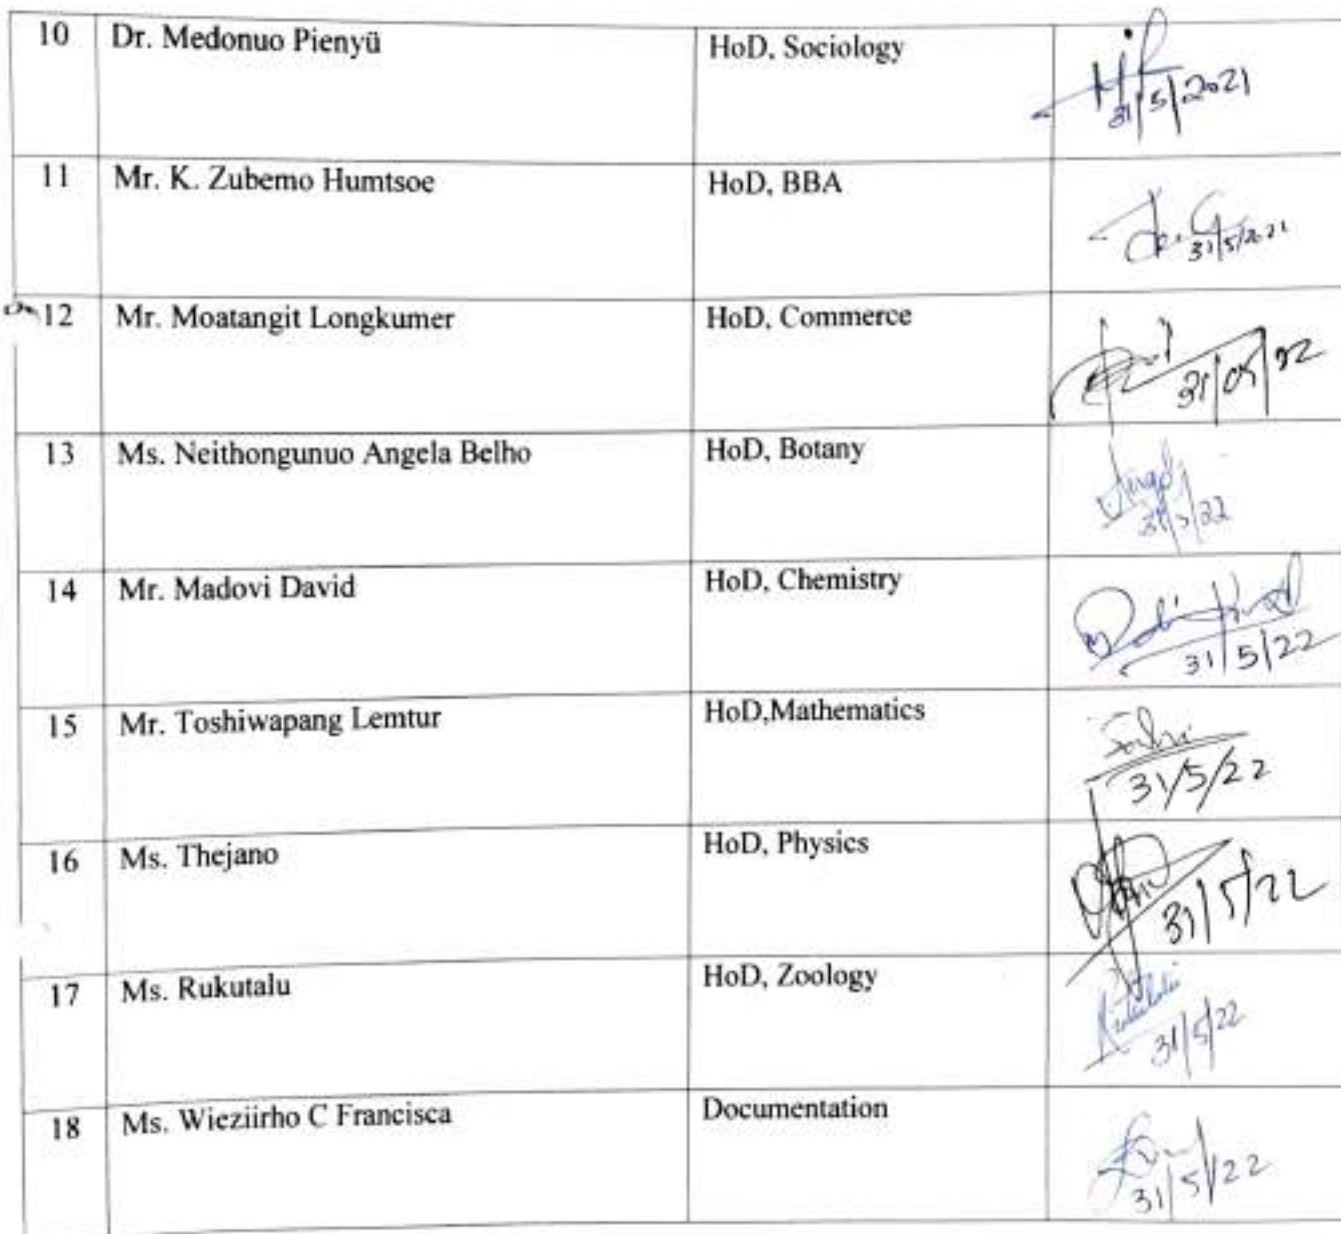 10 Dr. Medonuo Pienyü HoD, Sociology
31/5/2021
11 Mr. K. Zubemo Humtsoe HoD, BBA
31/5/2021
12 Mr. Moatangit Longkumer HoD, Commerce
31/05/22
13 Ms. Neithongunuo Angela Belho HoD, Botany
31/5/22
14 Mr. Madovi David HoD, Chemistry
31/5/22
15 Mr. Toshiwapang Lemtur HoD,Mathematics
31/5/22
16 Ms. Thejano HoD, Physics
31/5/22
17 Ms. Rukutalu HoD, Zoology
31/5/22
18 Ms. Wieziirho C Francisca Documentation
31/5/22